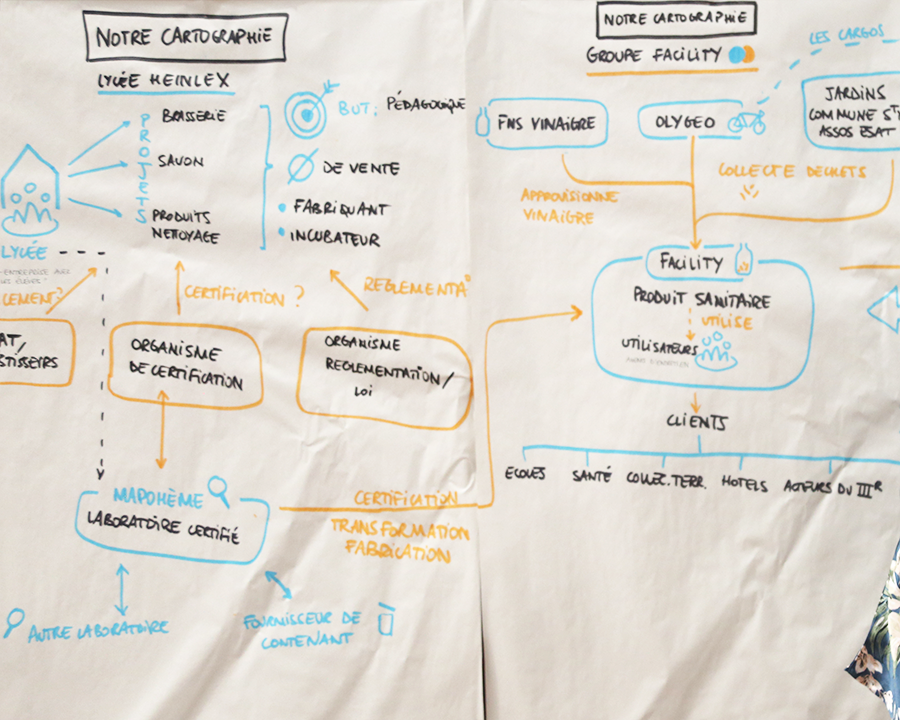 NOTRE CARTOGRAPHIE
LYCÉE HEINLEX
PROJETS
BRASSERIE
SAVON
PRODUITS
NETTOYAGE
BUT: PÉDAGOGIQUE
DE VENTE
FABRIQUANT
INCUBATEUR
LYCÉE
CEMENT?
CERTIFICATION ?
REGLEMENTA
AT/
STISSEURS
ORGANISME
DE CERTIFICATION
ORGANISME
REGLEMENTATION/
LOI
MAPOHÈME
LABORATOIRE CERTIFIÉ
CERTIFICATION
TRANSFORMATION
FABRICATION
AUTRE LABORATOIRE
FOURNISSEUR DE
CONTENANT
NOTRE CARTOGRAPHIE
GROUPE FACILITY
LES CARGOS
FNS VINAIGRE
OLYGEO
JARDINS
COMMUNE ST
ASSOS ESAT
APPROVISIONNE
VINAIGRE
COLLECTE DECHETS
FACILITY
PRODUIT SANITAIRE
UTILISE
UTILISATEURS
CLIENTS
ECOLES
SANTÉ
COLLEC.TERR.
HOTELS
ACTEURS DU IIIR